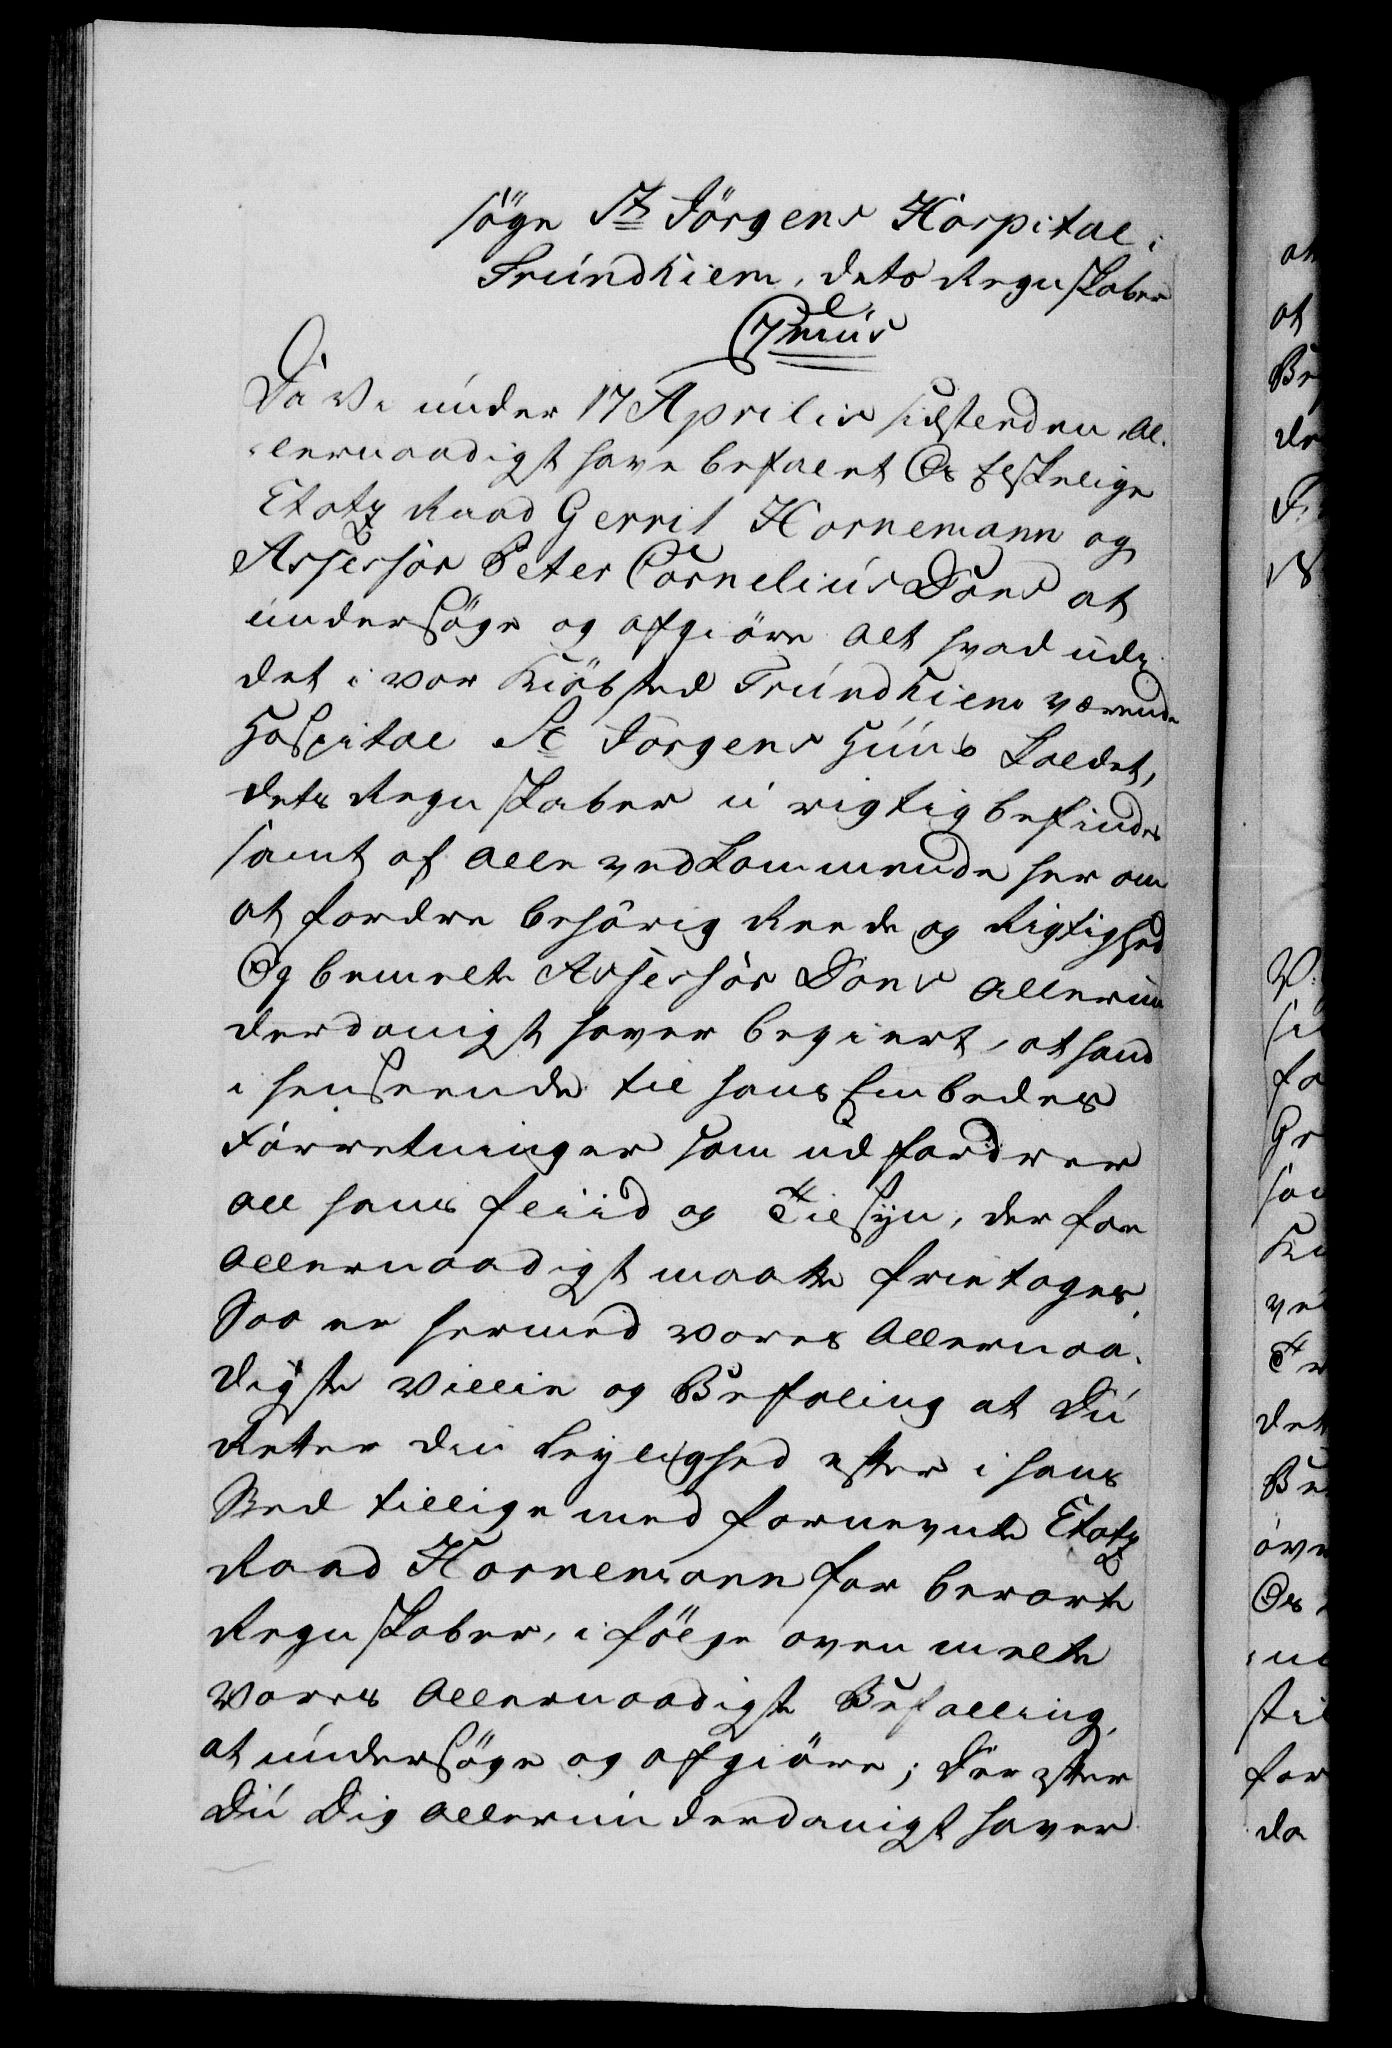 søge St Jörgens Hospital i
Trundhiem, dets Regnskaber
C7mus
Da Vi under 17 Aprilis sidstleden, Al-
lernaadigst have befalet Os Elskelige
Etatz Raad Gerrit Hornemann og
Assessor Peter Cornelius Dons at
undersøge og afgiöre alt hvad udj
det i vor Kiöbsted Trundhiem værende
Hospital St Jörgens Huus kaldet,
dets Regnskaber u rigtig befindes
samt af alle vedkommende her om
at fordre behörig Reede og Rigtighed
Og bemelte Assessor Dons allerun
derdanigst haver begiert, at hand
i henseende til hans Embedes
Forretninger som udfordrer
all hans fliid og Tilsyn, der for
allernaadigst maatte frietages.
Saa er hermed vores allernaa-
digste Villie og Befaling at Du
Retter din Leylighed efter i hans
Sted tillige med fornevnte Etatz
Raad Hornemann for berørte
Regnskaber, i fölge oven melte
Vores allernaadigste Befalling,
at undersøge og afgiöre; Der efter
Du Dig allerunderdanigst haver